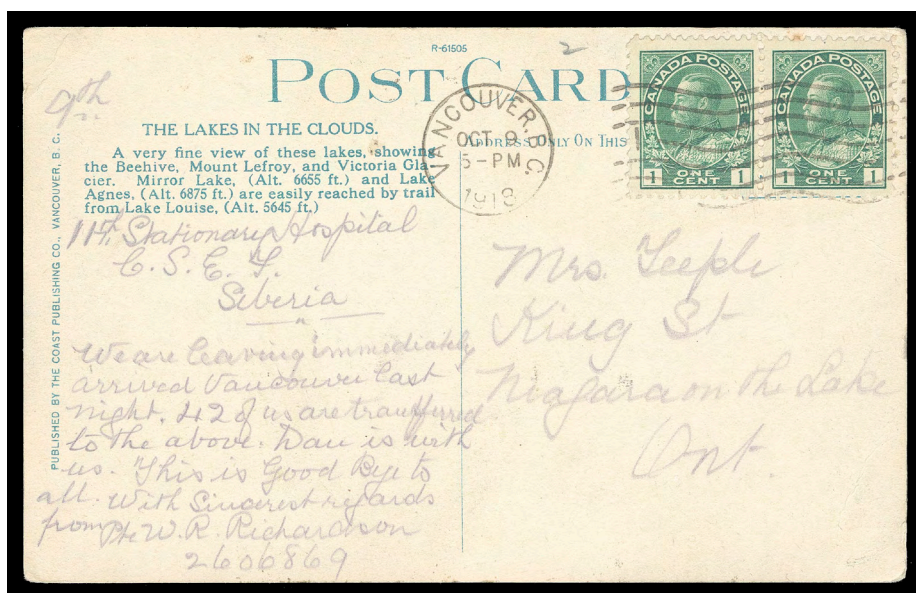 R-61505
2
POST CARD
9th
THE LAKES IN THE CLOUDS.
A very fine view of these lakes, showing
the Beehive, Mount Lefroy, and Victoria Gla-
cier. Mirror Lake, (Alt. 6655 ft.) and Lake
Agnes, (Alt. 6875 ft.) are easily reached by trail
from Lake Louise, (Alt. 5645 ft.)
ADDRESS ONLY ON THIS
VANCOUVER, B.C.
OCT 9
5-PM
1918
CANADA POSTAGE
1 ONE CENT 1
CANADA POSTAGE
1 ONE CENT 1
PUBLISHED BY THE COAST PUBLISHING CO., VANCOUVER, B. C.
11th Stationary Hospital
C. S. E. F.
Siberia
We are leaving immediately
arrived Vancouver last
night. 42 of us are transferred
to the above. Dan is with
us. This is Good Bye to
all. With Sincerest regards
from Pte W. R. Richardson
2606869
Mrs. Teeple
King St
Niagara on the Lake
Ont.